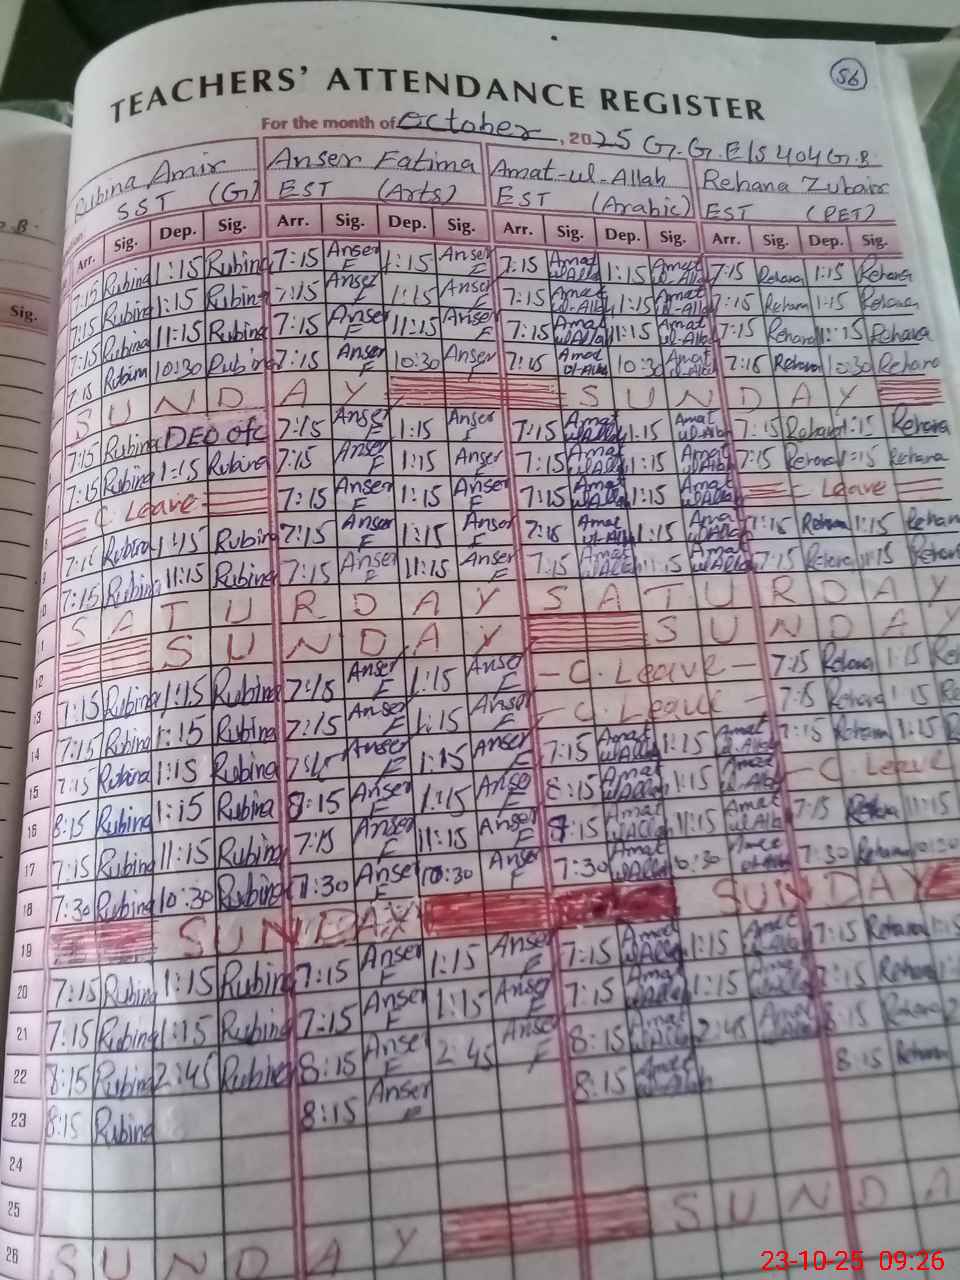 56
TEACHERS' ATTENDANCE REGISTER
For the month of October, 2025 G.G.E/S 404 G.B.
Rubina Amir Anser Fatima Amat-ul-Allah Rehana Zubair
SST (G) EST (Arts) EST (Arabic) EST (PET)
Arr. Sig. Dep. Sig. Arr. Sig. Dep. Sig. Arr. Sig. Dep. Sig. Arr. Sig. Dep. Sig.
Sig.
7:15 Rubina 1:15 Rubina 7:15 Anser F 1:15 Anser F 7:15 Amat ul Allah 1:15 Amat ul-Allah 7:15 Rehana 1:15 Rehana
7:15 Rubina 1:15 Rubina 7:15 Anser F 1:15 Anser F 7:15 Amat ul Allah 1:15 Amat ul-Allah 7:15 Rehana 1:15 Rehana
7:15 Rubina 11:15 Rubina 7:15 Anser F 11:15 Anser F 7:15 Amat ul Allah 11:15 Amat ul-Allah 7:15 Rehana 11:15 Rehana
7:15 Rubina 10:30 Rubina 7:15 Anser F 10:30 Anser F 7:15 Amat ul-Allah 10:30 Amat ul-Allah 7:15 Rehana 10:30 Rehana
SUNDAY SUNDAY
7:15 Rubina DEO ofc 7:15 Anser F 1:15 Anser F 7:15 Amat ul Allah 1:15 Amat ul Allah 7:15 Rehana 1:15 Rehana
7:15 Rubina 1:15 Rubina 7:15 Anser F 1:15 Anser F 7:15 Amat ul Allah 1:15 Amat ul Allah 7:15 Rehana 1:15 Rehana
C. Leave 7:15 Anser F 1:15 Anser F 7:15 Amat ul Allah 1:15 Amat ul Allah C. Leave
7:15 Rubina 1:15 Rubina 7:15 Anser F 1:15 Anser F 7:15 Amat ul-Allah 1:15 Amat ul Allah 7:15 Rehana 1:15 Rehana
7:15 Rubina 11:15 Rubina 7:15 Anser F 11:15 Anser F 7:15 Amat ul Allah 11:15 Amat ul Allah 7:15 Rehana 11:15 Rehana
SATURDAY SATURDAY
SUNDAY SUNDAY
12
13 7:15 Rubina 1:15 Rubina 7:15 Anser F 1:15 Anser F - C. Leave - 7:15 Rehana 1:15
14 7:15 Rubina 1:15 Rubina 7:15 Anser F 1:15 Anser F - C. Leave - 7:15 Rehana 1:15
15 7:15 Rubina 1:15 Rubina 7:15 Anser F 1:15 Anser F 7:15 Amat ul Allah 1:15 Amat ul-Allah 7:15 Rehana 1:15
16 8:15 Rubina 1:15 Rubina 8:15 Anser F 1:15 Anser F 8:15 Amat ul Allah 1:15 Amat ul-Allah - C. Leave
17 7:15 Rubina 11:15 Rubina 7:15 Anser F 11:15 Anser F 7:15 Amat ul Allah 11:15 Amat ul Allah 7:15 Rehana 11:15
18 7:30 Rubina 10:30 Rubina 7:30 Anser F 10:30 Anser F 7:30 Amat ul Allah 10:30 7:30 Rehana 10:30
19 SUNDAY SUNDAY
20 7:15 Rubina 1:15 Rubina 7:15 Anser F 1:15 Anser F 7:15 Amat ul Allah 1:15 Amat ul Allah 7:15 Rehana 1:15
21 7:15 Rubina 1:15 Rubina 7:15 Anser F 1:15 Anser F 7:15 Amat ul Allah 1:15 7:15 Rehana
22 8:15 Rubina 2:45 Rubina 8:15 Anser F 2:45 Anser F 8:15 Amat ul Allah 2:45 Amat ul Allah 8:15 Rehana
23 8:15 Rubina 8:15 Anser F 8:15 Amat ul Allah 8:15 Rehana
24
25
26 SUNDAY SUNDA
23-10-25 09:26